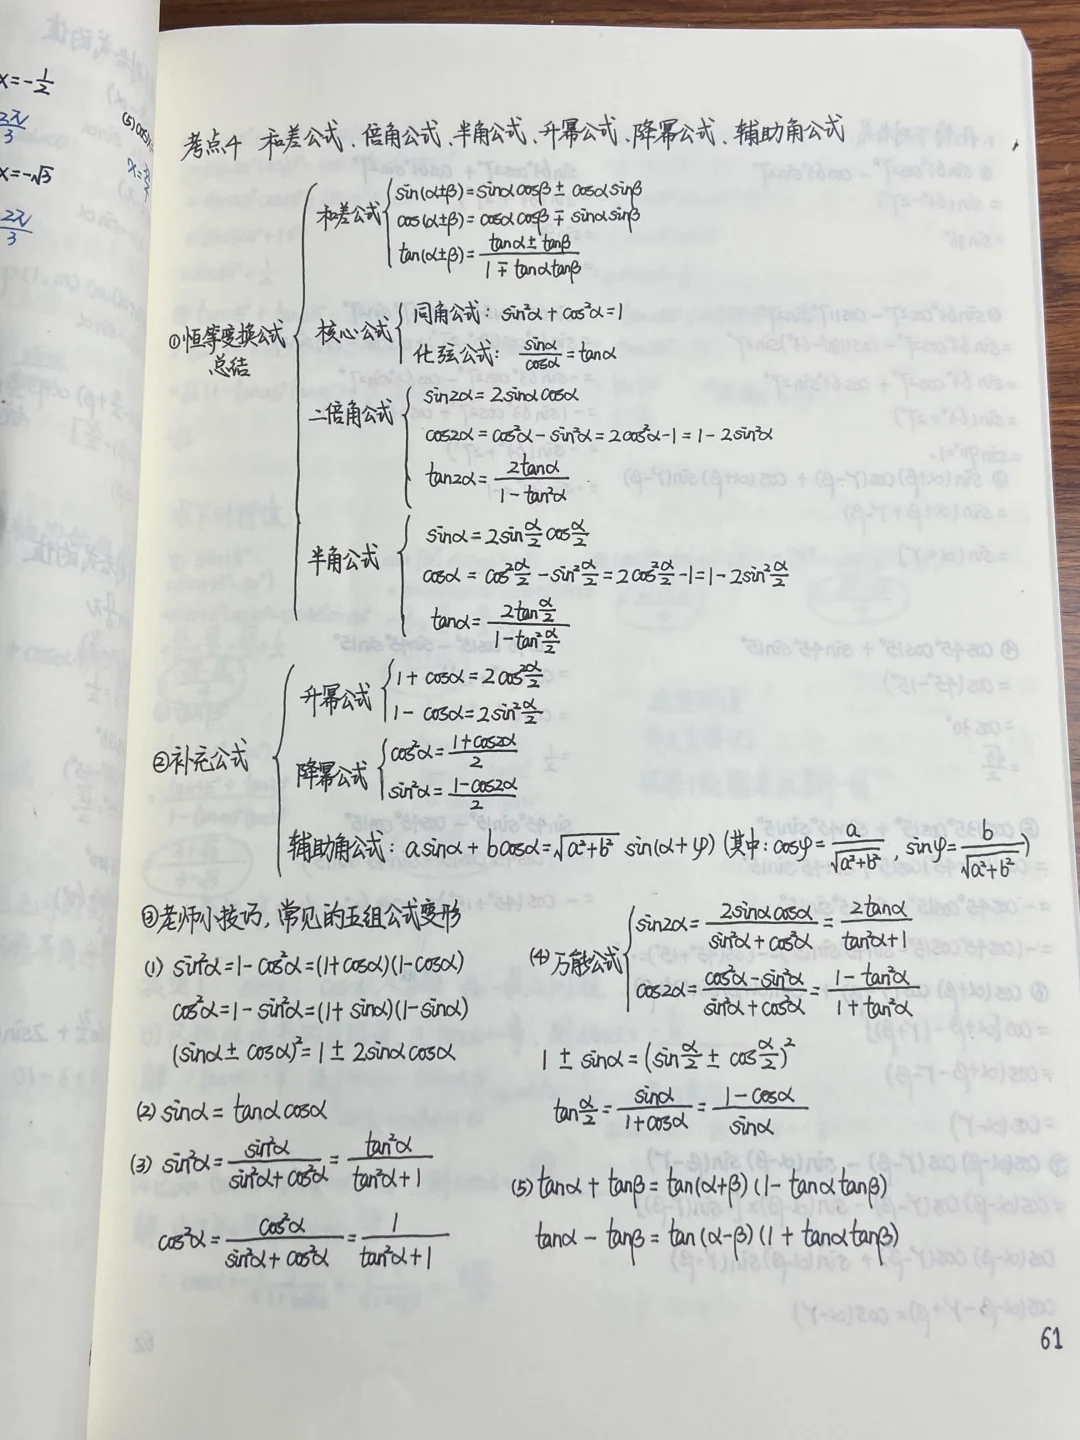 x=-1/2
2π/3
x=-√3
2π/3
考点4 和差公式、倍角公式、半角公式、升幂公式、降幂公式、辅助角公式
①恒等变换公式总结
和差公式
sin(α±β)=sinαcosβ±cosαsinβ
cos(α±β)=cosαcosβ∓sinαsinβ
tan(α±β)=(tanα±tanβ)/(1∓tanαtanβ)
核心公式
同角公式：sin²α+cos²α=1
化弦公式：sinα/cosα=tanα
二倍角公式
sin2α=2sinαcosα
cos2α=cos²α-sin²α=2cos²α-1=1-2sin²α
tan2α=2tanα/(1-tan²α)
半角公式
sinα=2sin(α/2)cos(α/2)
cosα=cos²(α/2)-sin²(α/2)=2cos²(α/2)-1=1-2sin²(α/2)
tanα=2tan(α/2)/(1-tan²(α/2))
②补充公式
升幂公式
1+cosα=2cos²(α/2)
1-cosα=2sin²(α/2)
降幂公式
cos²α=(1+cos2α)/2
sin²α=(1-cos2α)/2
辅助角公式：asinα+bcosα=√(a²+b²) sin(α+φ)(其中：cosφ=a/√(a²+b²)，sinφ=b/√(a²+b²))
③老师小技巧，常见的五组公式变形
(1) sin²α=1-cos²α=(1+cosα)(1-cosα)
cos²α=1-sin²α=(1+sinα)(1-sinα)
(sinα±cosα)²=1±2sinαcosα
(2) sinα=tanαcosα
(3) sin²α=sin²α/(sin²α+cos²α)=tan²α/(tan²α+1)
cos²α=cos²α/(sin²α+cos²α)=1/(tan²α+1)
(4) 万能公式
sin2α=2sinαcosα/(sin²α+cos²α)=2tanα/(tan²α+1)
cos2α=(cos²α-sin²α)/(sin²α+cos²α)=(1-tan²α)/(1+tan²α)
1±sinα=(sin(α/2)±cos(α/2))²
tan(α/2)=sinα/(1+cosα)=(1-cosα)/sinα
(5) tanα+tanβ=tan(α+β)(1-tanαtanβ)
tanα-tanβ=tan(α-β)(1+tanαtanβ)
61